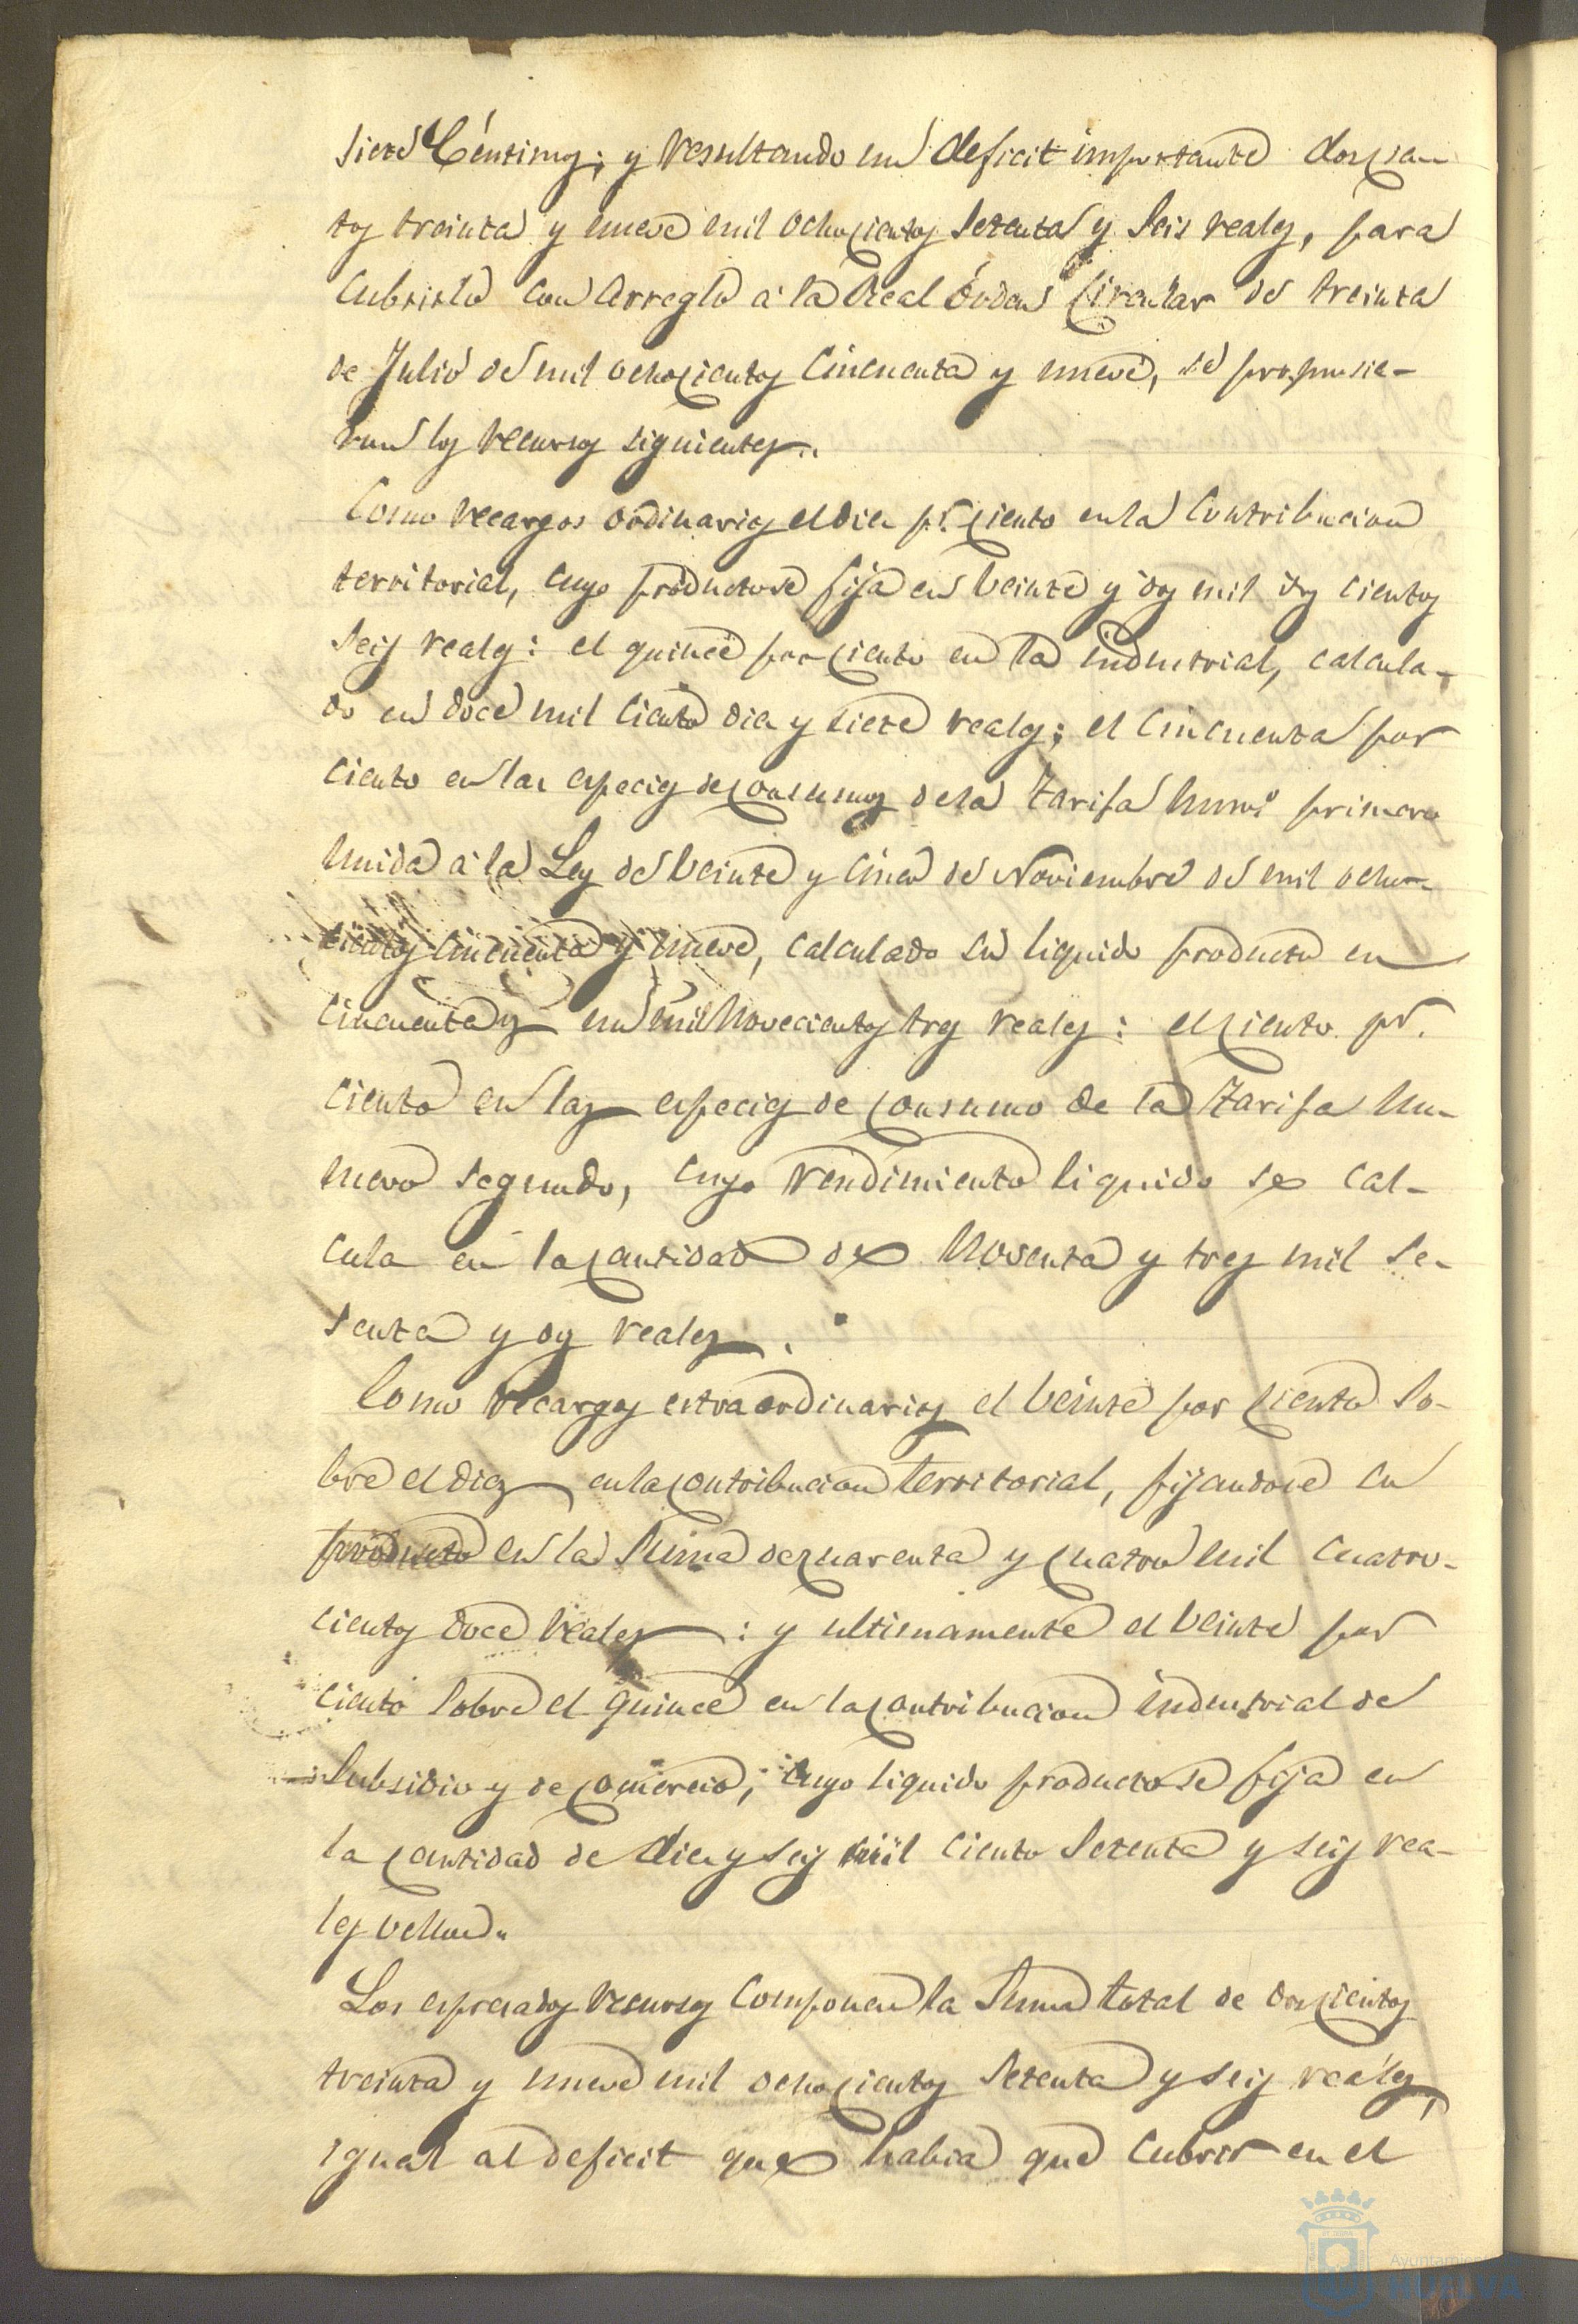 siete Céntimos; y resultando un deficit importante doscien-
tos treinta y nueve mil ochocientos setenta y seis reales, para
cubrirlo con arreglo a la Real órden Circular de treinta
de Julio de mil ochocientos Cincuenta y nueve, se propusie-
ron los recursos siguientes..
Como recargos ordinarios el diez pr. Ciento en la Contribucion
territorial, cuyo producto se fija en beinte y dos mil dos cientos
seis reales: el quince por Ciento en la industrial, calcula-
do en doce mil ciento diez y siete reales; el cincuenta por
ciento en las especies de Consumos de la tarifa Numº primero
unida a la Ley de beinte y cinco de Noviembre de mil ocho-
cientos cincuenta y nueve, calculado su liquido producto en
cincuenta y un mil Novecientos tres reales: el Ciento pr.
ciento en las especies de Consumo de la Tarifa Nu-
mero segundo, cuyo rendimiento liquido se cal-
cula en la Cantidad de Noventa y tres mil se-
senta y dos reales.
Como recargos estraordinarios el beinte por Ciento so-
bre el diez en la Contribucion territorial, fijandose su
producto en la suma de Cuarenta y Cuatro mil cuatro-
cientos doce reales: y ultimamente el beinte por
ciento sobre el quince en la Contribucion industrial de
Subsidio y de Comercio; cuyo liquido producto se fija en
la Cantidad de diez y seis mil ciento setenta y seis rea-
les vellon.
Los espresados recursos componen la suma total de doscientos
treinta y nueve mil ochocientos setenta y seis reales,
igual al deficit que habia que cubrir en el
Ayuntamiento
HUELVA